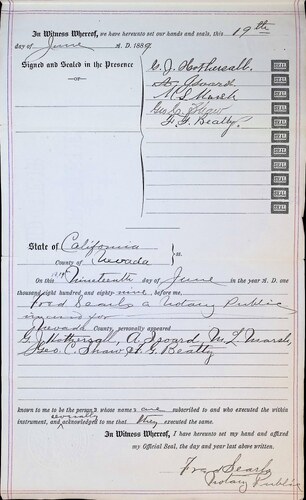 In Witness Whereof, we have hereunto set our hands and seals, this 19th
day of June A. D. 1889.
Signed and Sealed in the Presence
OF
G. J. Hothersall.
A. Isoard
M. L. Marsh
Geo. C. Shaw
F. G. Beatty.
SEAL
SEAL
SEAL
SEAL
SEAL
SEAL
SEAL
SEAL
SEAL
SEAL
SEAL
State of California
County of Nevada } ss.
On this Nineteenth day of June in the year A. D. one
thousand eight hundred and eighty-nine, before me,
Fred Searls a Notary Public
in and for
Nevada County, personally appeared
G. J. Hothersall, A. Isoard, M. L. Marsh,
Geo. C. Shaw F. G. Beatty
known to me to be the persons whose names are subscribed to and who executed the within
severally
instrument, and acknowledged to me that they executed the same.
In Witness Whereof, I have hereunto set my hand and affixed
my Official Seal, the day and year last above written.
Fred Searls
Notary Public